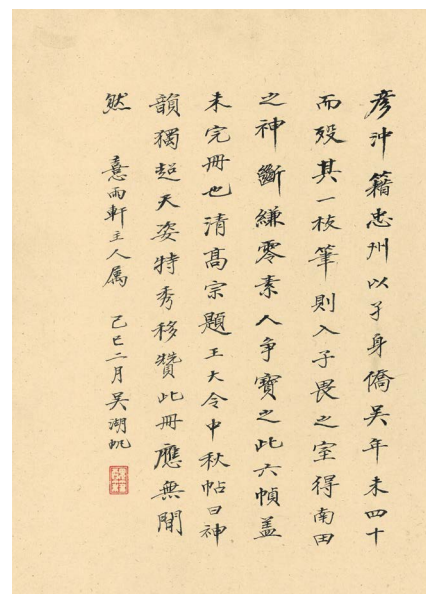 彥沖籍忠州以孑身僑吳年未四十
而歿其一枝筆則入子畏之室得南田
之神斷縑零素人争寶之此六幀盖
未完冊也清高宗題王大令中秋帖曰神
韻獨超天姿特秀移贊此冊應無閒
然 憙雨軒主人属 己巳二月吴湖帆